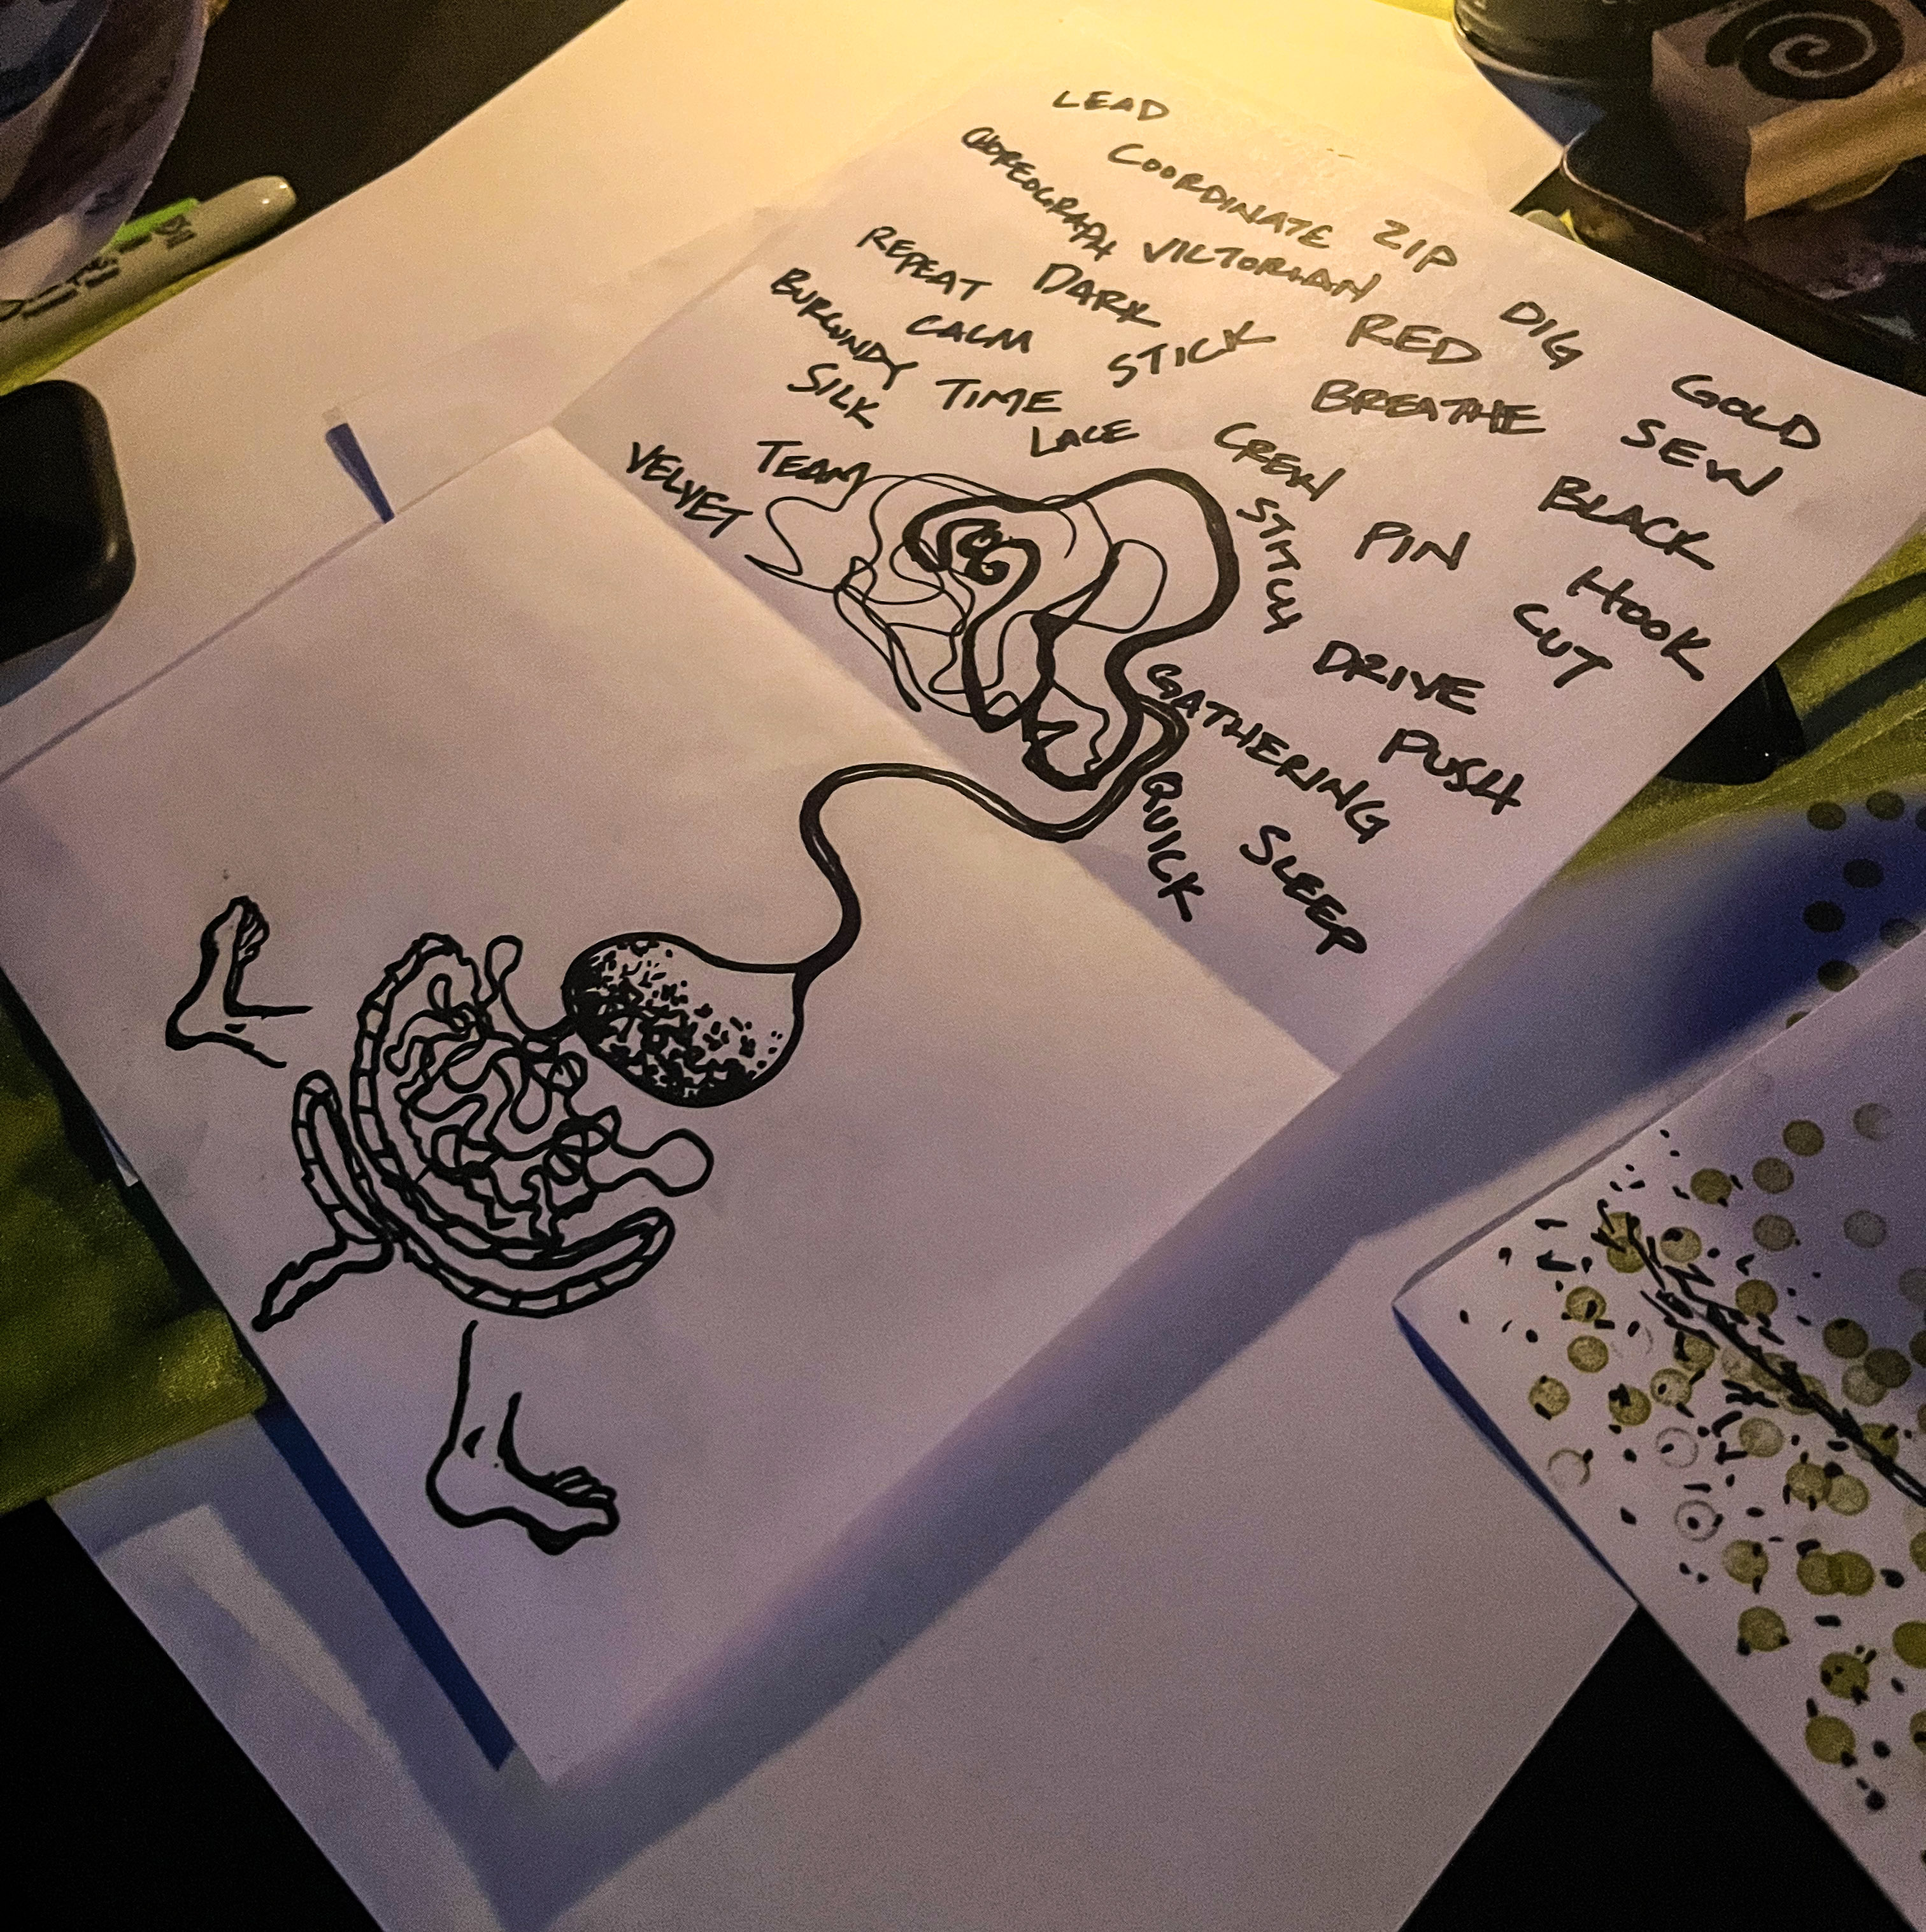 LEAD
COORDINATE
ZIP
CHOREOGRAPH
VICTORIAN
DIG
GOLD
REPEAT
DARK
RED
BURGUNDY
CALM
STICK
BREATHE
SEW
SILK
TIME
LACE
CREW
BLACK
VELVET
TEAM
STITCH
PIN
HOOK
CUT
DRIVE
GATHERING
PUSH
QUICK
SLEEP